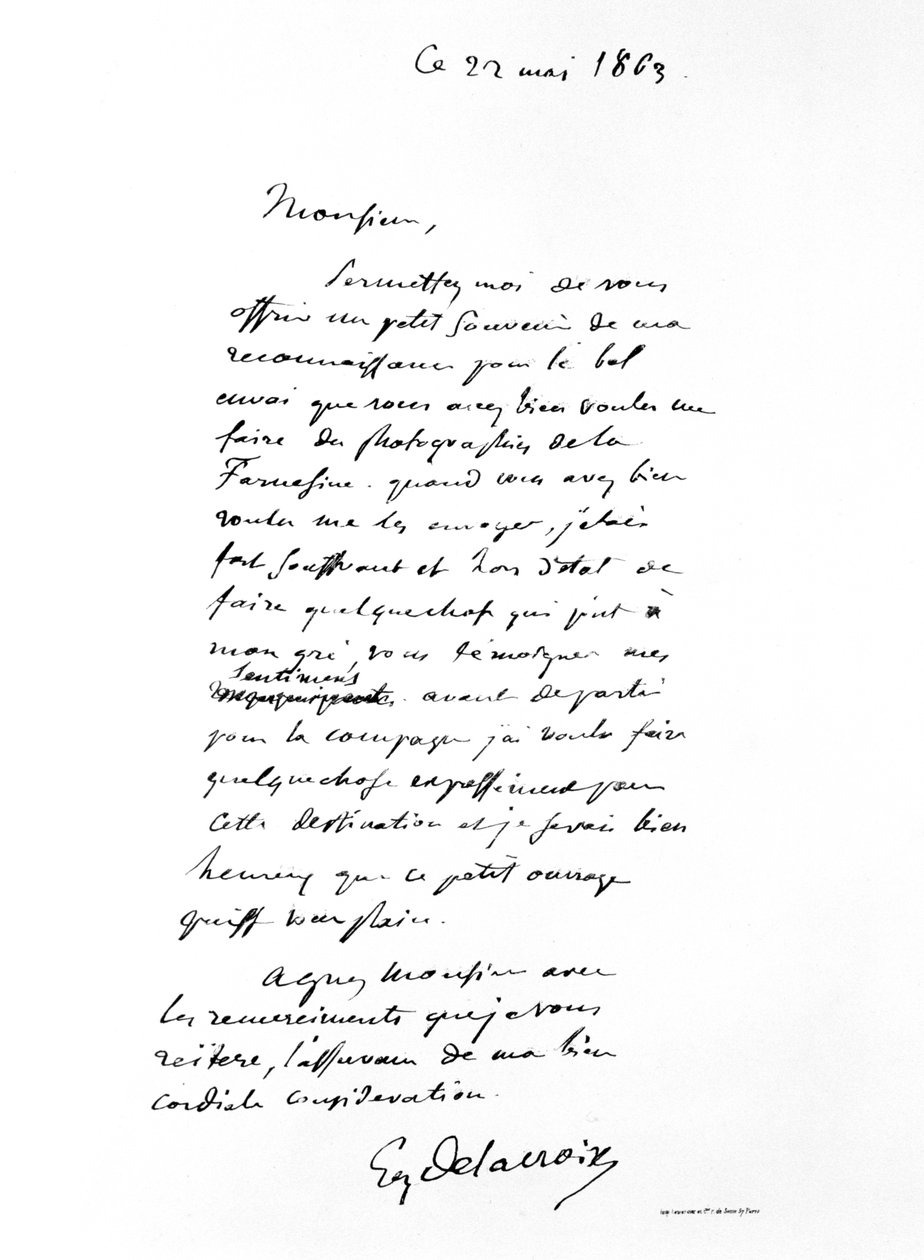 Ce 22 mai 1863.
Monsieur,
Permettez moi de vous
offrir un petit souvenir de ma
reconnaissance pour le bel
envoi que vous avez bien voulu me
faire des photographies de la
Farnesine. quand vous avez bien
voulu me les envoyer, j'étais
fort souffrant et hors d'état de
faire quelquechose qui put à
mon gré, vous témoigner mes
sentiments
avant de partir
pour la campagne j'ai voulu faire
quelquechose expressément pour
cette destination et je serais bien
heureux que ce petit ouvrage
puisse vous plaire.
Agréez Monsieur avec
les remerciments que je vous
réitère, l'assurance de ma bien
cordiale considération.
Eug Delacroix